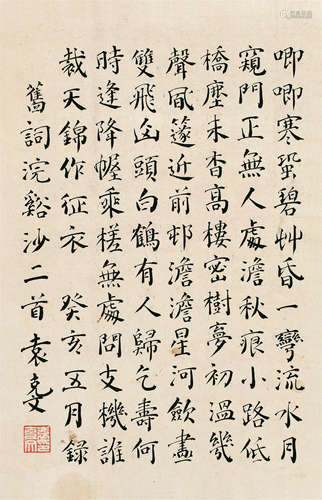 唧唧寒蛩碧艸昏一彎流水月
窺門正無人處澹秋痕小路低
橋塵未杳高樓密樹夢初溫幾
聲風篴近前邨澹澹星河斂畫
雙飛頭白鶴有人歸乞壽何
時逢降幄乘槎無處問支機誰
裁天錦作征衣 癸亥五月錄
舊詞浣谿沙二首 袁克文